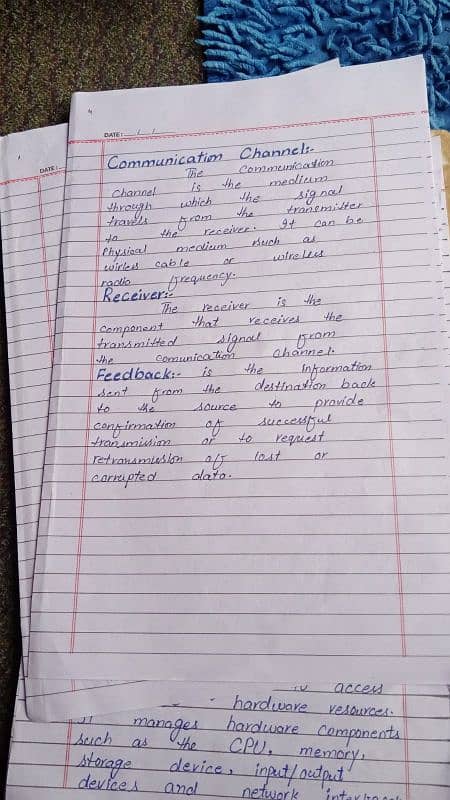 DATE: / /
Communication Channel:-
The communication
channel is the medium
through which the signal
travels from the transmitter
to the receiver. It can be
Physical medium such as
wirles cable or wireless
radio frequency.
Receiver:-
The receiver is the
component that receives the
transmitted signal from
the comunication channel.
Feedback:- is the information
sent from the destination back
to the source to provide
confirmation of successful
transmission or to request
retransmission of lost or
corrupted data.
DATE:
access
hardware resources.
It manages hardware components
such as the CPU, memory,
storage device, input/output
devices and network